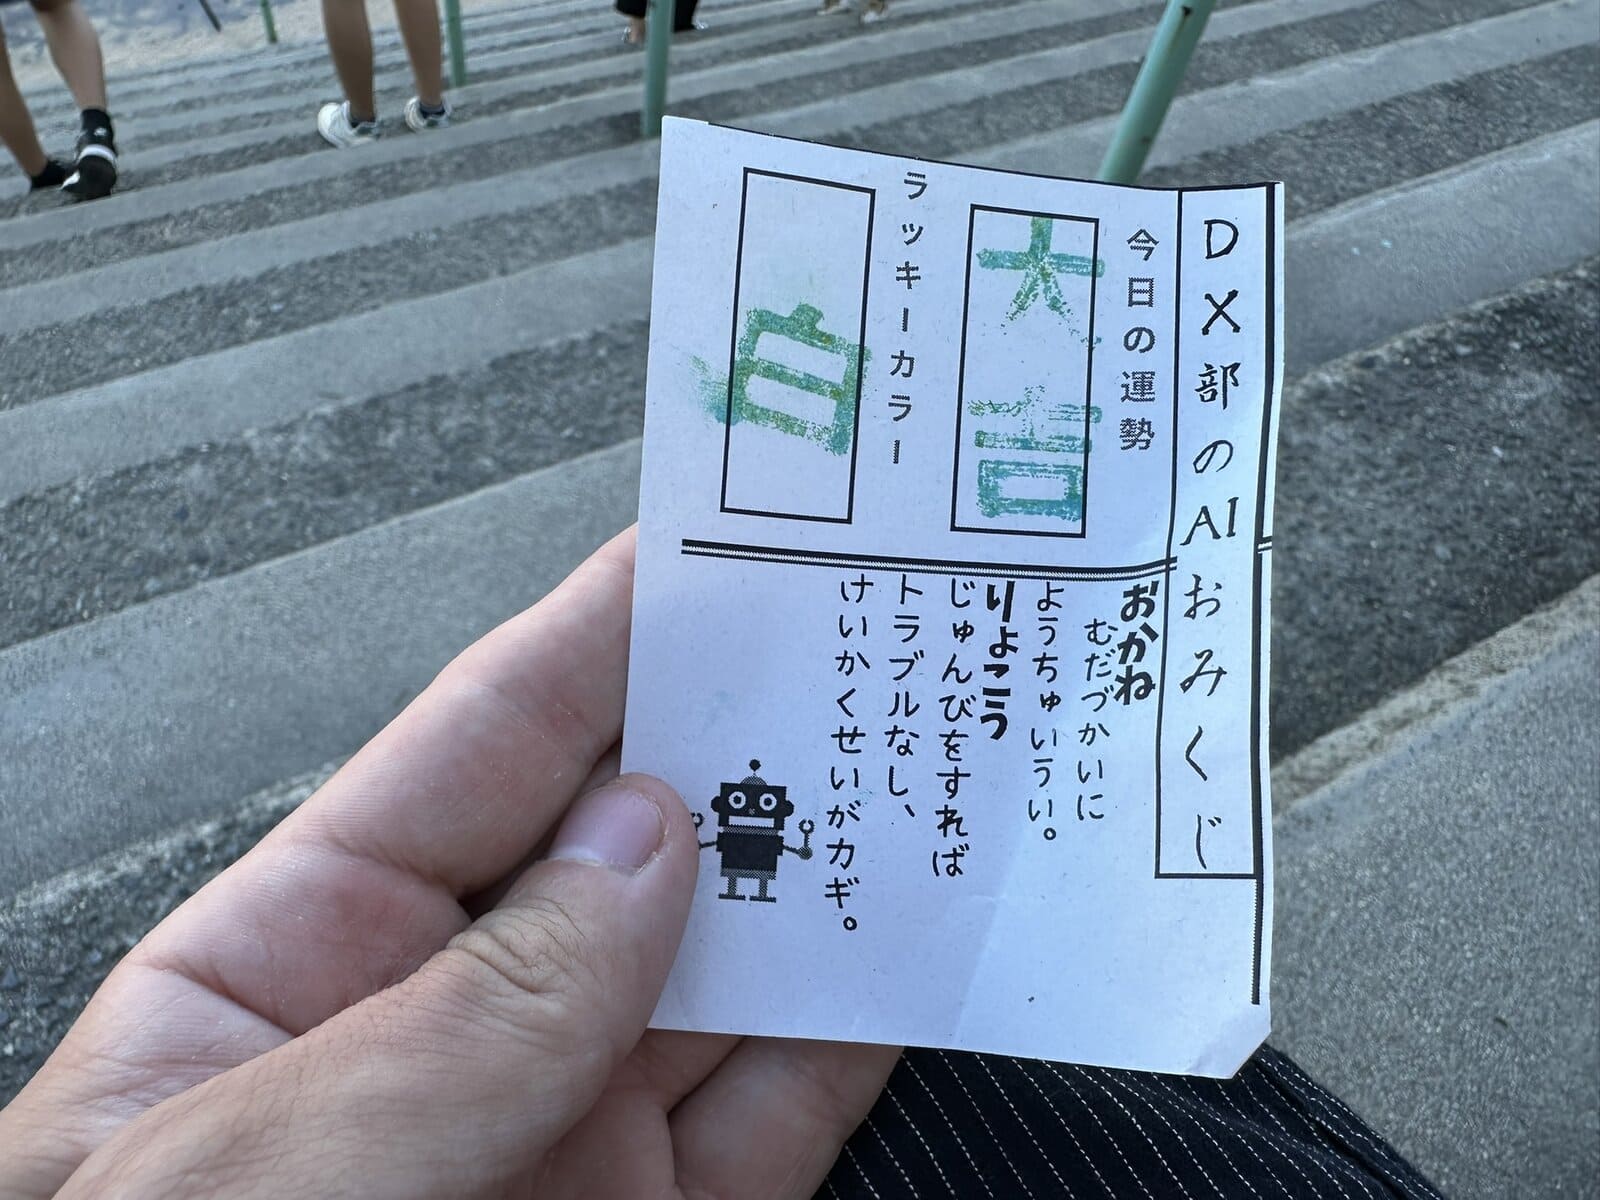 DX部のAIおみくじ
今日の運勢
大吉
ラッキーカラー
白
おかね
むだづかいに
ようちゅいうい。
りょこう
じゅんびをすれば
トラブルなし、
けいかくせいがカギ。